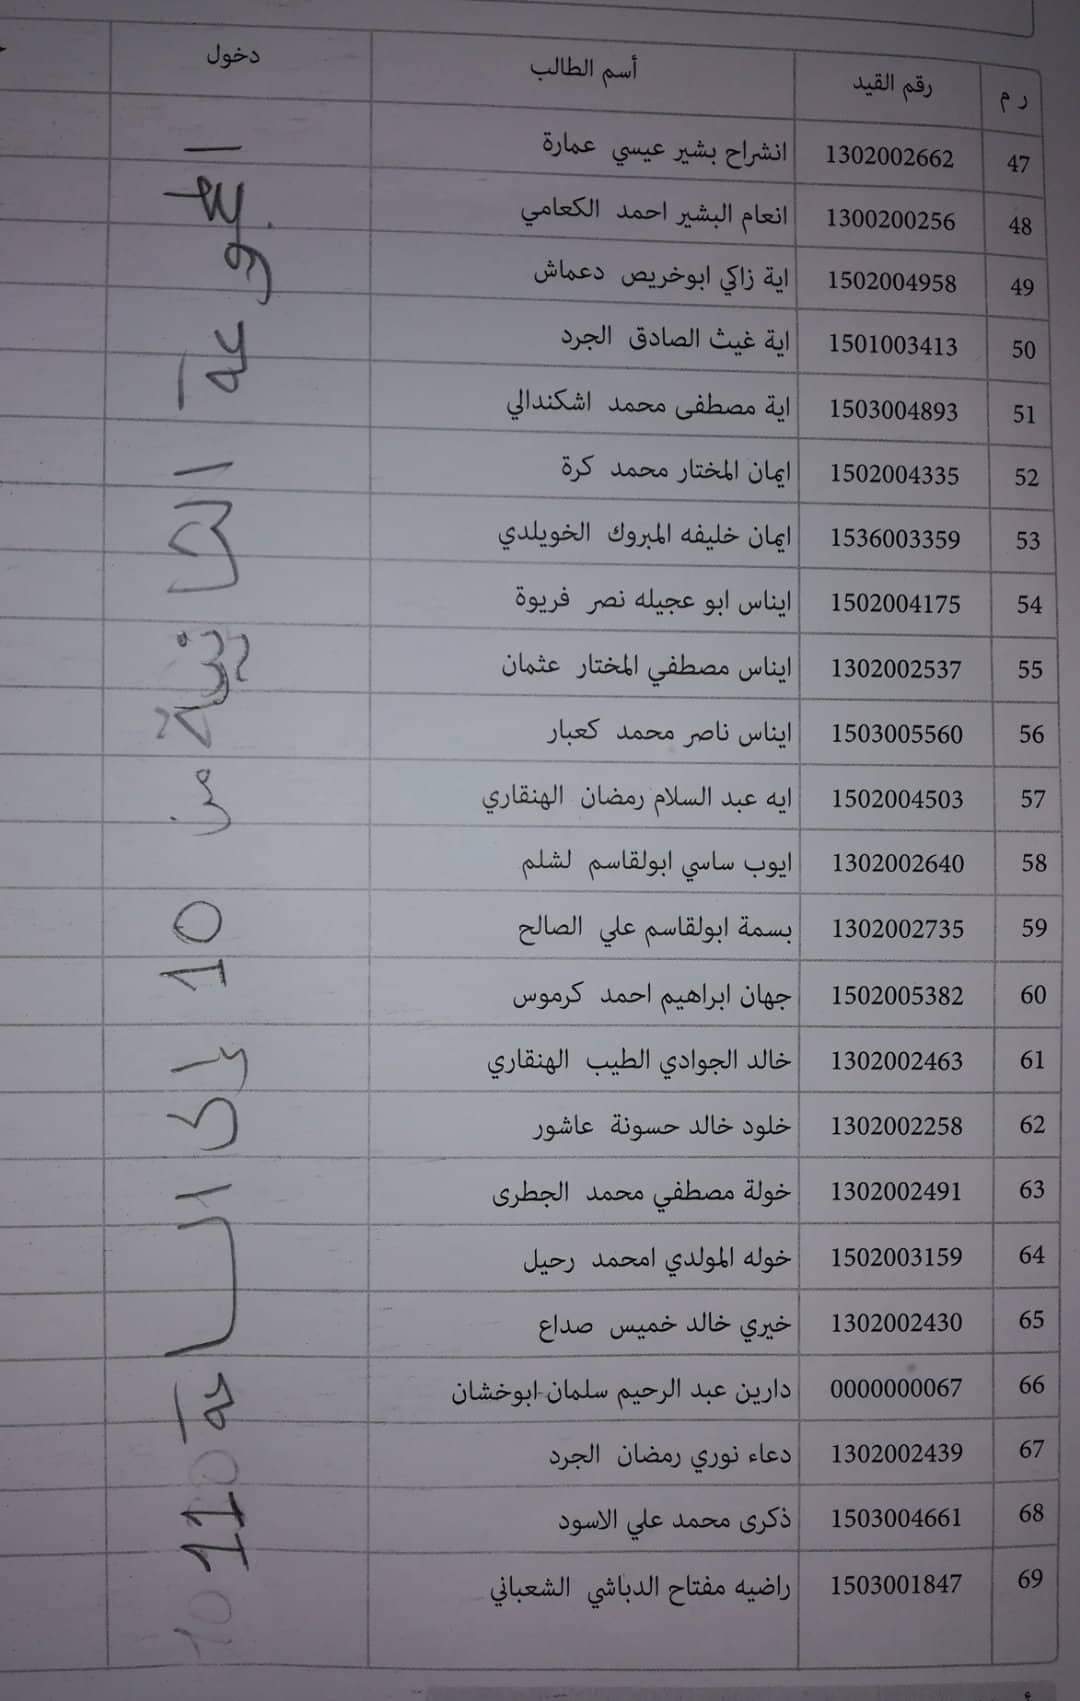 ر م رقم القيد أسم الطالب دخول
47 1302002662 انشراح بشير عيسي عمارة
48 1300200256 انعام البشير احمد الكعامي
49 1502004958 اية زاكي ابوخريص دعماش
50 1501003413 اية غيث الصادق الجرد
51 1503004893 اية مصطفى محمد اشكندالي
52 1502004335 ايمان المختار محمد كرة
53 1536003359 ايمان خليفه المبروك الخويلدي
54 1502004175 ايناس ابو عجيله نصر فريوة
55 1302002537 ايناس مصطفي المختار عثمان
56 1503005560 ايناس ناصر محمد كعبار
57 1502004503 ايه عبد السلام رمضان الهنقاري
58 1302002640 ايوب ساسي ابولقاسم لشلم
59 1302002735 بسمة ابولقاسم علي الصالح
60 1502005382 جهان ابراهيم احمد كرموس
61 1302002463 خالد الجوادي الطيب الهنقاري
62 1302002258 خلود خالد حسونة عاشور
63 1302002491 خولة مصطفي محمد الجطرى
64 1502003159 خوله المولدي امحمد رحيل
65 1302002430 خيري خالد خميس صداع
66 0000000067 دارين عبد الرحيم سلمان ابوخشان
67 1302002439 دعاء نوري رمضان الجرد
68 1503004661 ذكرى محمد علي الاسود
69 1503001847 راضيه مفتاح الدباشي الشعباني
المجموعة الثانية من 10 الى الساعة 11